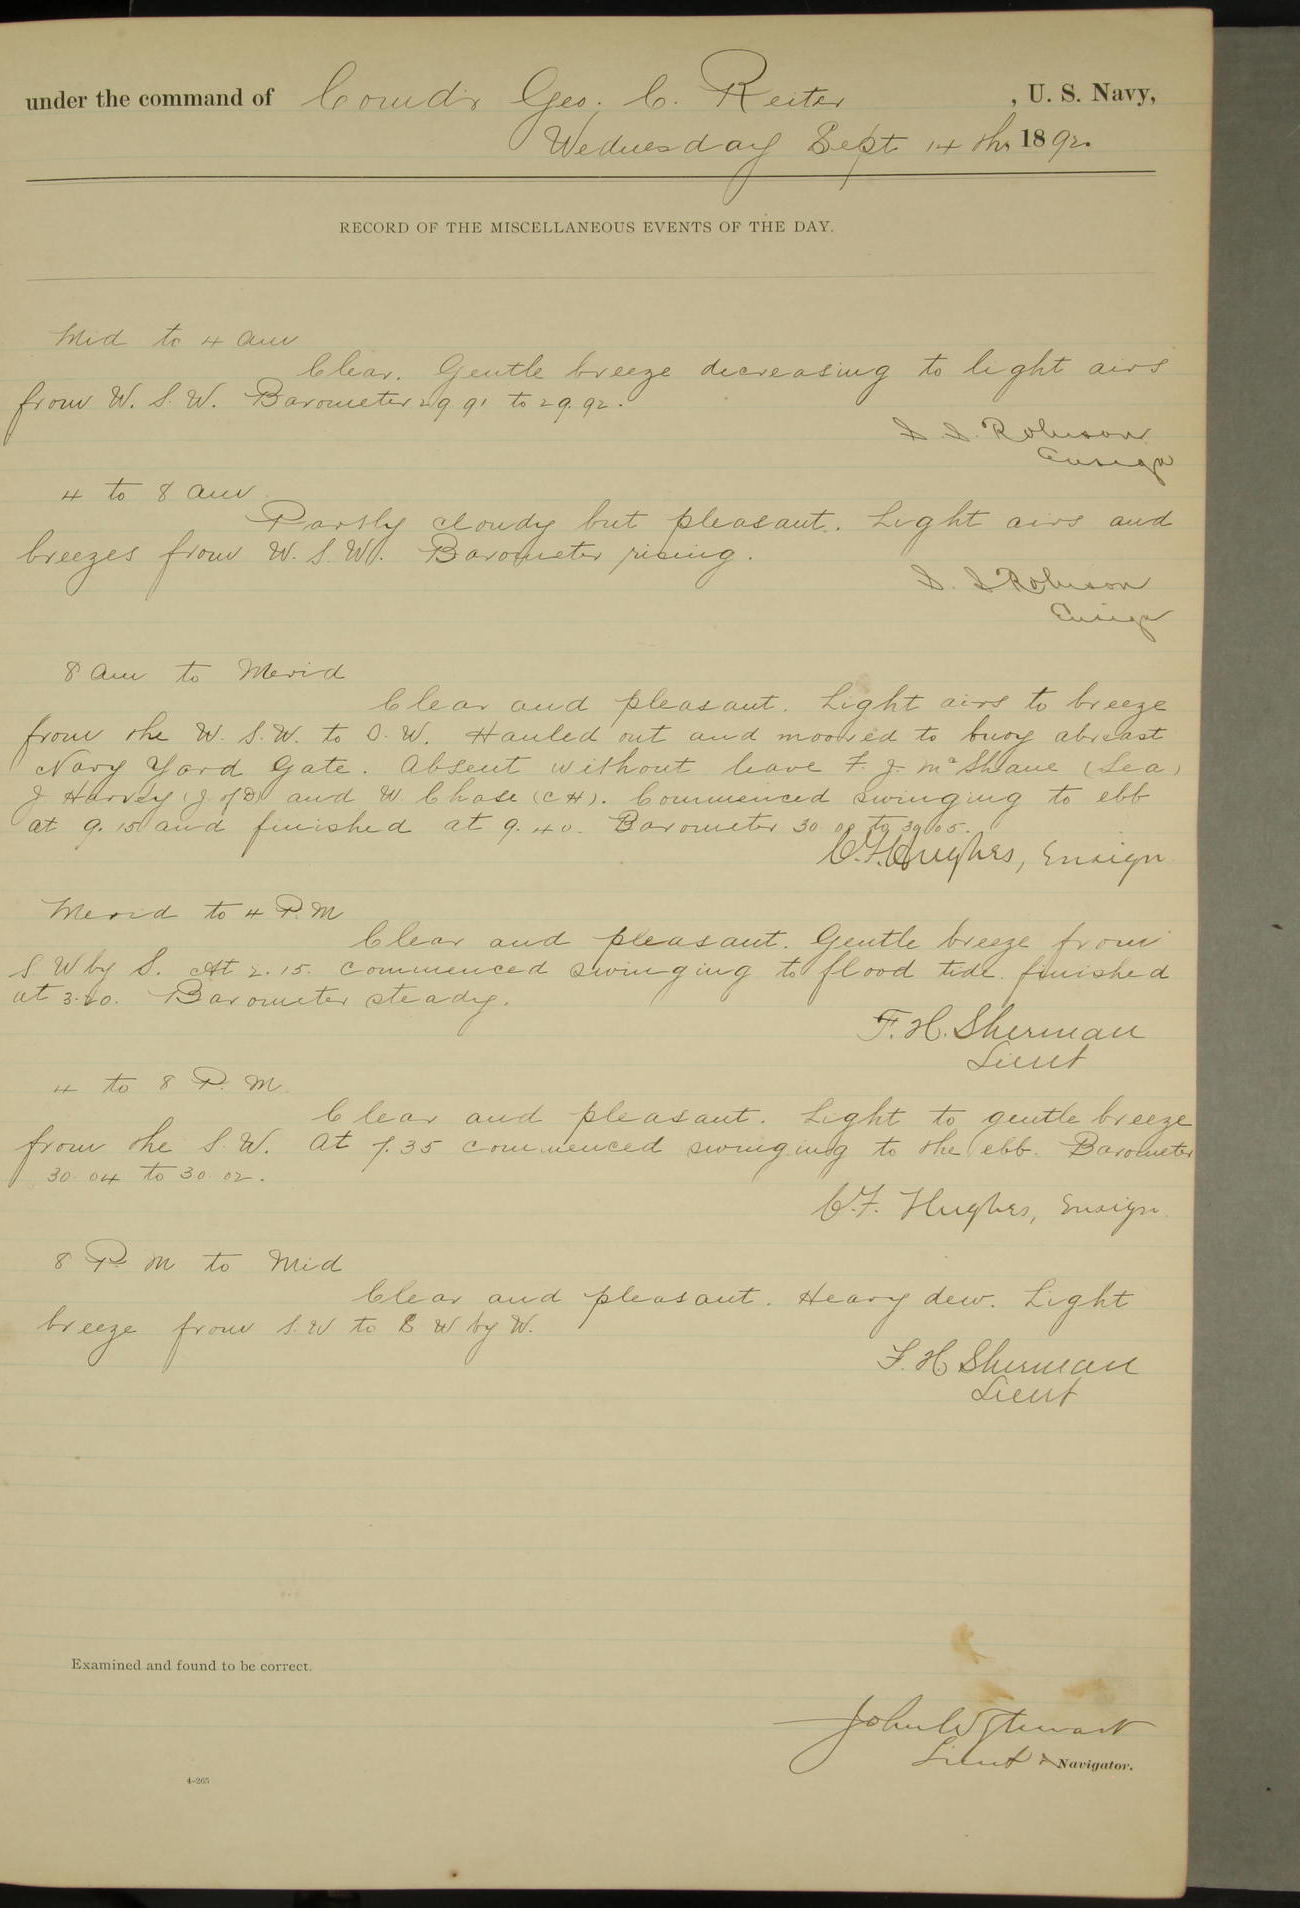 under the command of Comd'r Geo. C. Reiter, U. S. Navy,
Wednesday Sept 14th, 1892.
RECORD OF THE MISCELLANEOUS EVENTS OF THE DAY.
Mid to 4 am
Clear. Gentle breeze decreasing to light airs
from W. S. W. Barometer 29.91 to 29.92.
S. S. Robison
Ensign
4 to 8 am
Partly cloudy but pleasant. Light airs and
breezes from W. S. W. Barometer rising.
S. S. Robison
Ensign
8 am to Merid
Clear and pleasant. Light airs to breeze
from the W. S. W. to S. W. Hauled out and moored to buoy abreast
Navy Yard Gate. Absent without leave F. J. McShane (Sea)
J Harvey (J. of D) and W. Chase (CH). Commenced swinging to ebb
at 9.15 and finished at 9.40. Barometer 30 00 to 30 05.
C. F. Hughes, Ensign
Merid to 4 P. M
Clear and pleasant. Gentle breeze from
S. W by S. At 2.15. commenced swinging to flood tide finished
at 3.20. Barometer steady.
F. H. Sherman
Lieut
4 to 8 P. M.
Clear and pleasant. Light to gentle breeze
from the S. W. At 7.35 commenced swinging to the ebb. Barometer
30.04 to 30.02.
C. F. Hughes, Ensign.
8 P. M to Mid
Clear and pleasant. Heavy dew. Light
breeze from S. W to S W by W.
F. H. Sherman
Lieut
Examined and found to be correct.
John W Stewart
Lieut & Navigator.
4-265